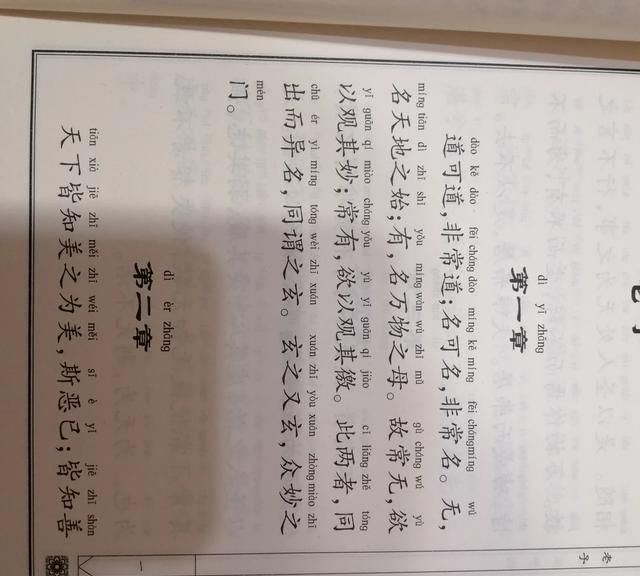 老子
dì yī zhāng
第一章
dào kě dào fēi cháng dào míng kě míng fēi cháng míng wú
道可道，非常道；名可名，非常名。无，
míng tiān dì zhī shǐ yǒu míng wàn wù zhī mǔ gù cháng wú yù
名天地之始；有，名万物之母。故常无，欲
yǐ guān qí miào cháng yǒu yù yǐ guān qí jiào cǐ liǎng zhě tóng
以观其妙；常有，欲以观其徼。此两者，同
chū ér yì míng tóng wèi zhī xuán xuán zhī yòu xuán zhòng miào zhī
出而异名，同谓之玄。玄之又玄，众妙之
mén
门。
dì èr zhāng
第二章
tiān xià jiē zhī měi zhī wéi měi sī è yǐ jiē zhī shàn
天下皆知美之为美，斯恶已；皆知善
一